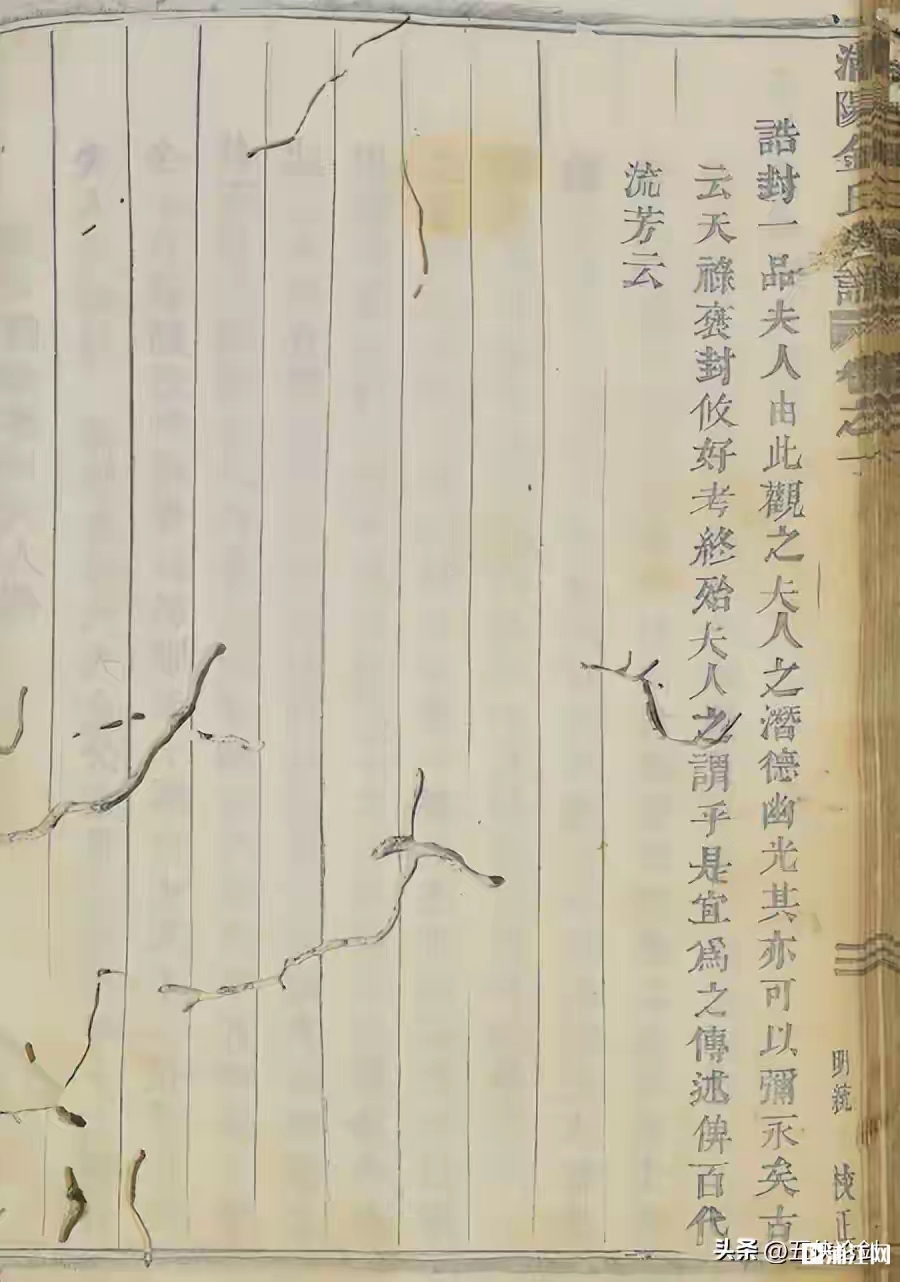 浦陽金氏宗譜 卷之一
誥封一品夫人由此觀之夫人之潛德幽光其亦可以彌永矣古
云天祿褒封攸好考終殆夫人之謂乎是宜為之傳述俾百代
流芳云
明統 校正
头条 @五峡论剑
浦江网